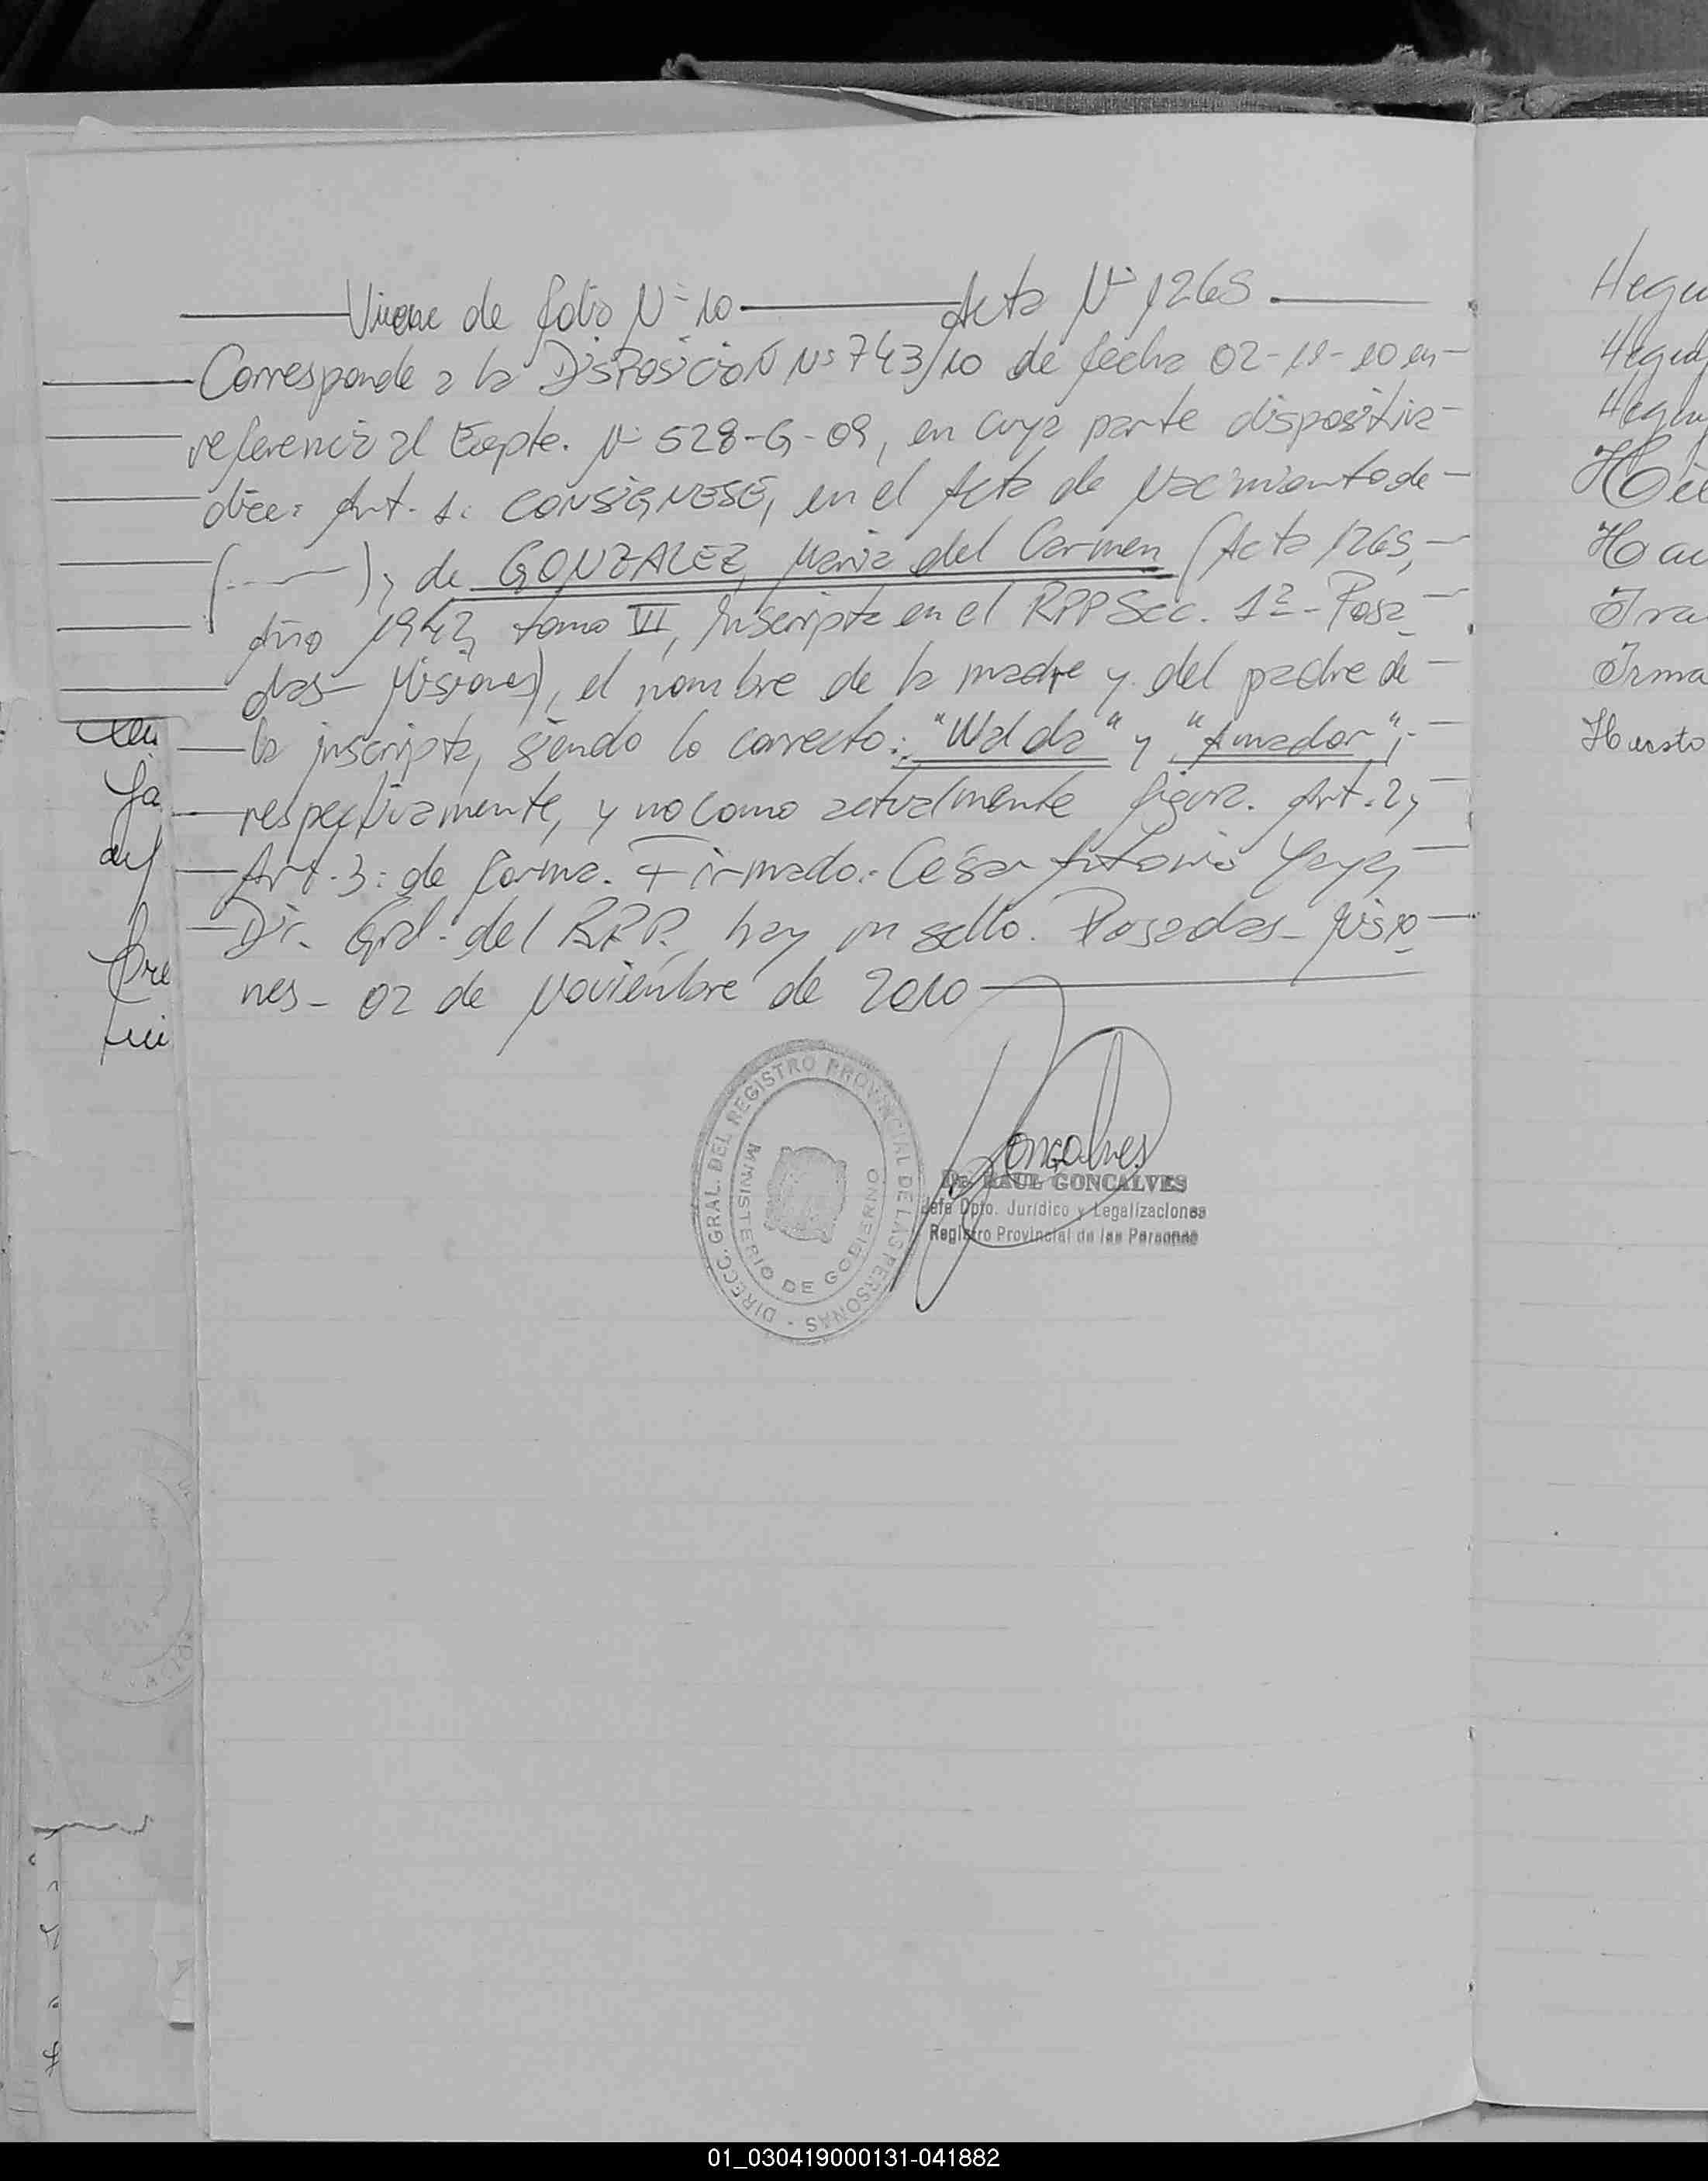 Viene de folio Nº 10 Acta Nº 1265.
Corresponde a la DISPOSICIÓN Nº 743/10 de fecha 02-11-10 en
referencia al Expte. Nº 528-G-09, en cuya parte dispositiva
dice: Art. 1: CONSIGNESE, en el Acta de Nacimiento de
(----), de GONZALEZ, María del Carmen (Acta 1265,
Año 1942, tomo VII, Inscripta en el RPP Sec. 1ª - Posa
das - Misiones), el nombre de la madre y del padre de
la inscripta, siendo lo correcto: "Walda" y "Amador",
respectivamente, y no como actualmente figura. Art. 2,
Art. 3: de forma. Firmado: César Antonio Yaya,
Dir. Gral. del RPP. hay un sello. Posadas - Misio
nes - 02 de Noviembre de 2010
DIRECC. GRAL. DEL REGISTRO PROVINCIAL DE LAS PERSONAS -
MINISTERIO DE GOBIERNO
Goncalves
Dr. RAUL GONCALVES
Jefe Dpto. Jurídico y Legalizaciones
Registro Provincial de las Personas
Irma
01_030419000131-041882